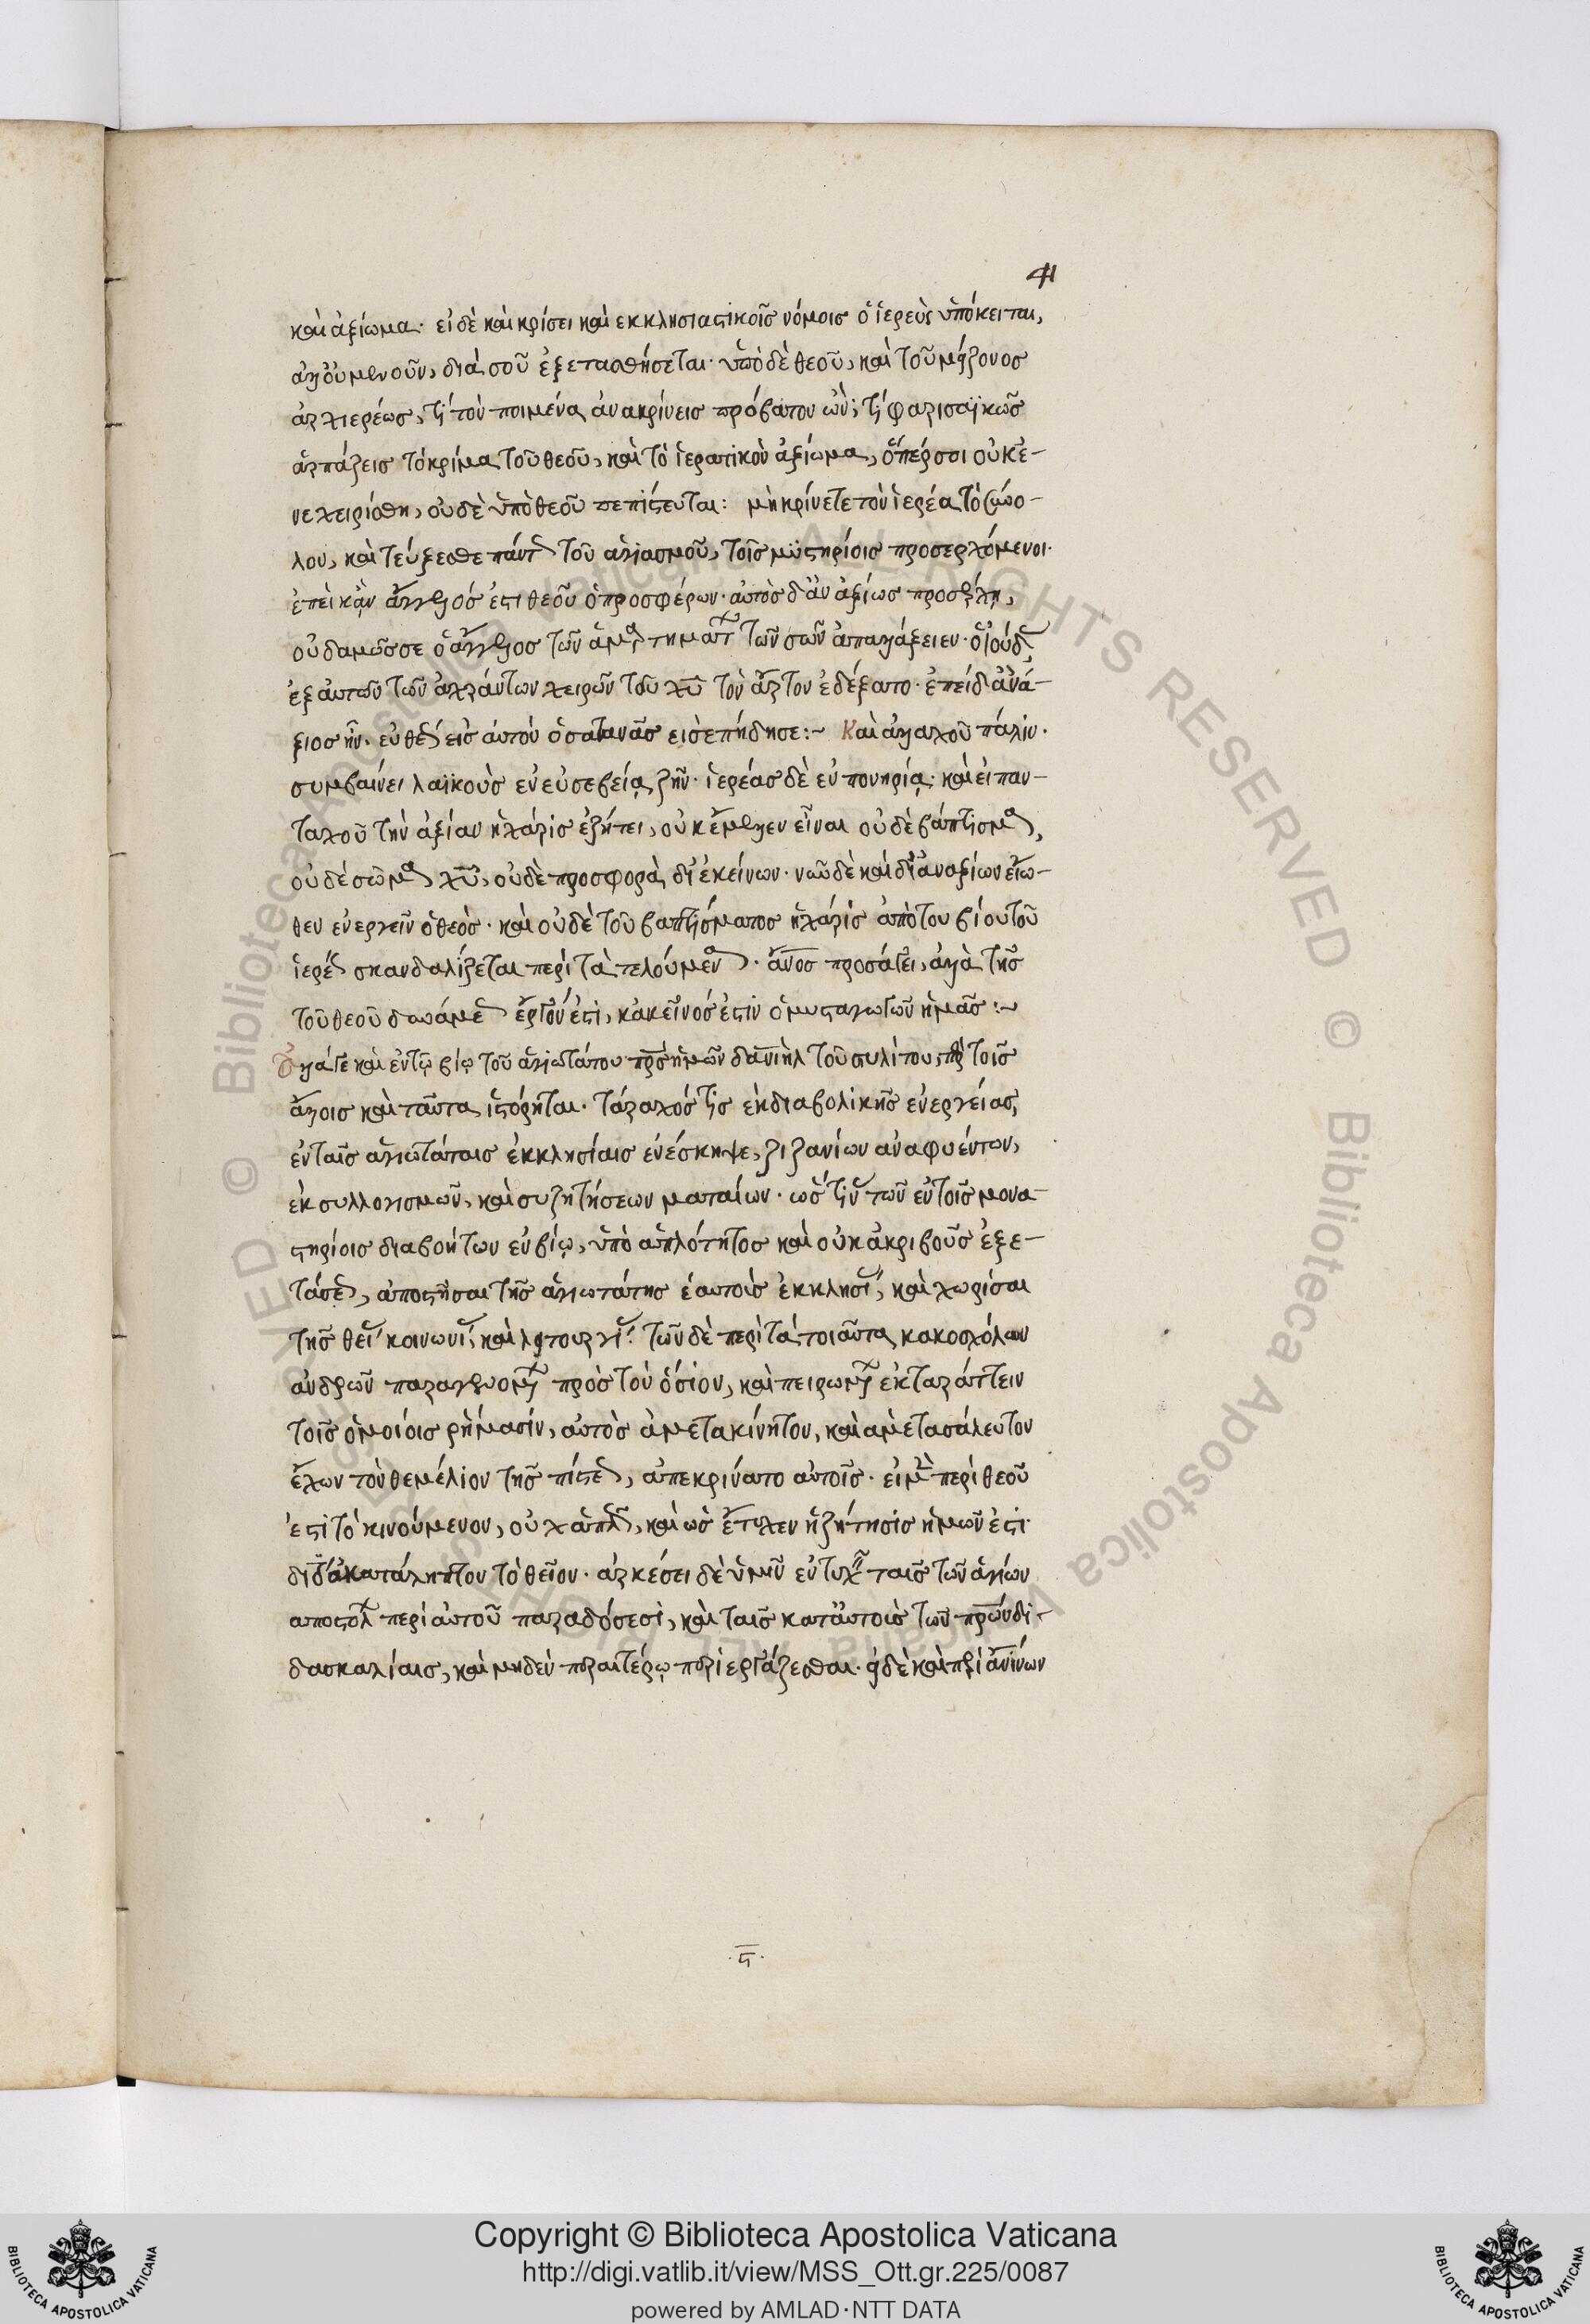 41
καὶ ἀξίωμα· εἰ δὲ καὶ κρίσει καὶ ἐκκλησιαστικοῖς νόμοις ὁ ἱερεὺς ὑπόκειται,
ἀλλ' οὐ μὲν οὖν, διὰ σοῦ ἐξετασθήσεται· ὑπὸ δὲ θεοῦ, καὶ τοῦ μείζονος
ἀρχιερέως, τί τὸν ποιμένα ἀνακρίνεις πρόβατον ὤν; τί φαρισαϊκῶς
ἁρπάζεις τὸ κρίμα τοῦ θεοῦ, καὶ τὸ ἱερατικὸν ἀξίωμα, ὅπερ σοι οὐκ ἐ-
νεχειρίσθη, οὐδὲ ὑπὸ θεοῦ πεπίστευται: μὴ κρίνετε τὸν ἱερέα τὸ σύνο-
λον, καὶ τεύξεσθε πάντως τοῦ ἁγιασμοῦ, τοῖς μυστηρίοις προσερχόμενοι·
ἐπεὶ κἂν ἄγγελός ἐστι θεοῦ ὁ προσφέρων· αὐτὸς δ' ἀναξίως προσέλθῃ,
οὐδαμῶς σε ὁ ἄγγελος τῶν ἁμαρτημάτων τῶν σῶν ἀπαλλάξειεν· ὁ ἰούδας
ἐξ αὐτῶν τῶν ἀχράντων χειρῶν τοῦ χῡ τὸν ἄρτον ἐδέξατο· ἐπεὶ δ' ἀνά-
ξιος ἦν· εὐθέως εἰς αὐτὸν ὁ σατανᾶς εἰσεπήδησε:~ Καὶ ἀλλαχοῦ πάλιν·
συμβαίνει λαϊκοὺς ἐν εὐσεβείᾳ ζῆν· ἱερέας δὲ ἐν πονηρίᾳ· καὶ εἰ παν-
ταχοῦ τὴν ἀξίαν ἡ χάρις ἐζήτει, οὐκ ἔμελλεν εἶναι οὐδὲ βάπτισμα,
οὐδὲ σῶμα χῡ, οὐδὲ προσφορὰ δι' ἐκείνων· νῦν δὲ καὶ δι' ἀναξίων εἴω-
θεν ἐνεργεῖν ὁ θεός· καὶ οὐδὲ τοῦ βαπτίσματος ἡ χάρις ἀπὸ τοῦ βίου τοῦ
ἱερέως σκανδαλίζεται περὶ τὰ τελούμενα· ἄνος προσάγει, ἀλλὰ τῆς
τοῦ θεοῦ δυνάμεως ἔργον ἐστί, κἀκεῖνός ἐστιν ὁ μυσταγωγῶν ἡμᾶς:~
Ὅγά γε καὶ ἐν τῷ βίῳ τοῦ ἁγιωτάτου πρ̅ς ἡμῶν δανιὴλ τοῦ στυλίτου, πρὸς τοῖς
ἄλλοις καὶ ταῦτα ἱστόρηται· τάραχός τις ἐκ διαβολικῆς ἐνεργείας
ἐν ταῖς ἁγιωτάταις ἐκκλησίαις ἐνέσκηψε, ζιζανίων ἀναφυέντων,
ἐκ συλλογισμῶν, καὶ συζητήσεων ματαίων· ὥς τινας τῶν ἐν τοῖς μονα-
στηρίοις διαβοήτων ἐν βίῳ, ὑπὸ ἁπλότητος καὶ οὐκ ἀκριβοῦς ἐξε-
τάσεως, ἀποστῆσαι τῆς ἁγιωτάτης ἑαυτοὺς ἐκκλησίας, καὶ χωρίσαι
τῆς θείας κοινωνίας, καὶ λειτουργίας· τῶν δὲ περὶ τὰ τοιαῦτα κακοσχόλων
ἀνδρῶν παραγενομένων πρὸς τὸν ὅσιον, καὶ πειρωμένων ἐκταράττειν
τοῖς ὁμοίοις ῥήμασιν, αὐτὸς ἀμετακίνητον, καὶ ἀμετασάλευτον
ἔχων τὸν θεμέλιον τῆς πίστεως, ἀπεκρίνατο αὐτοῖς· εἰ μὲν περὶ θεοῦ
ἐστὶ τὸ κινούμενον, οὐχ ἁπλῆ, καὶ ὡς ἔτυχεν ἡ ζήτησις ἡμῶν ἐστι·
διότι ἀκατάληπτον τὸ θεῖον· ἀρκέσει δὲ ὑμῖν ἐντυχεῖν ταῖς τῶν ἁγίων
ἀποστόλων περὶ αὐτοῦ παραδόσεσι, καὶ ταῖς κατ' αὐτοὺς τῶν πρ̅ων δι-
δασκαλίαις, καὶ μηδὲν περαιτέρω περιεργάζεσθαι· εἰ δὲ καὶ περὶ ἀνίνων
·ϛ·
Copyright © Biblioteca Apostolica Vaticana
http://digi.vatlib.it/view/MSS_Ott.gr.225/0087
powered by AMLAD·NTT DATA